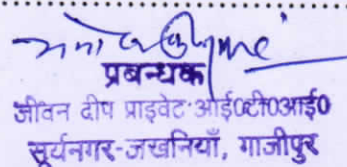 प्रबन्धक
जीवन दीप प्राइवेट आई0टी0आई0
सूर्यनगर-जखनियाँ, गाजीपुर